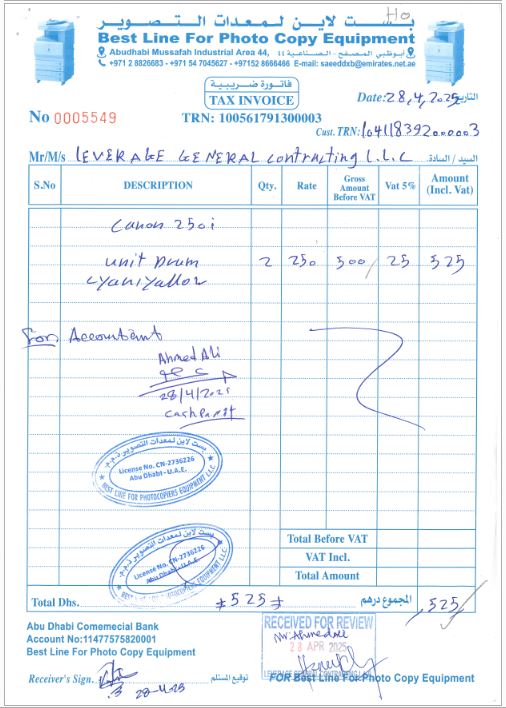 HO
بست لاين لمعدات التصوير
Best Line For Photo Copy Equipment
Abudhabi Mussafah Industrial Area 44, أبوظبي المصفح - الصناعية ٤٤
+971 2 8826683 - +971 54 7045627 - +97152 8666466 E-mail: saeeddxb@emirates.net.ae
فاتورة ضريبية
TAX INVOICE
Date: 28,4,2025 التاريخ
No 0005549
TRN: 100561791300003
Cust. TRN: 104118392000003
Mr/M/s LEVERAGE GENERAL contracting L.L.C السيد / السادة
S.No DESCRIPTION Qty. Rate Gross Amount Before VAT Vat 5% Amount (Incl. Vat)
Canon 250i
unit Drum 2 250 500/ 25 525
cyan
For Accountant
Ahmed Ali
28/4/2025
بست لاين لمعدات التصوير ذ.م.م.
License No. CN-2736226
Abu Dhabi - U.A.E.
BEST LINE FOR PHOTOCOPIERS EQUIPMENT L.L.C
بست لاين لمعدات التصوير ذ.م.م.
License No. CN-2736226
Abu Dhabi - U.A.E.
BEST LINE FOR PHOTOCOPIERS EQUIPMENT L.L.C
Total Before VAT
VAT Incl.
Total Amount
Total Dhs. ≠525≠ المجموع درهم 525
Abu Dhabi Comemecial Bank
Account No:11477575820001
Best Line For Photo Copy Equipment
RECEIVED FOR REVIEW
28 APR 2025
Receiver's Sign. توقيع المستلم
FOR Best Line For Photo Copy Equipment